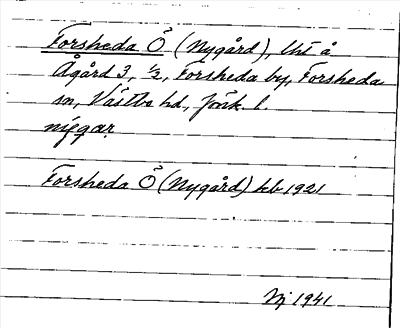 Forsheda Ö (Nygård), lht å
Ågård 3, ½, Forsheda by, Forsheda
sn, Västbo hd, Jönk. l.
nýgạr
Forsheda Ö (Nygård) kb 1921
Nj 1941